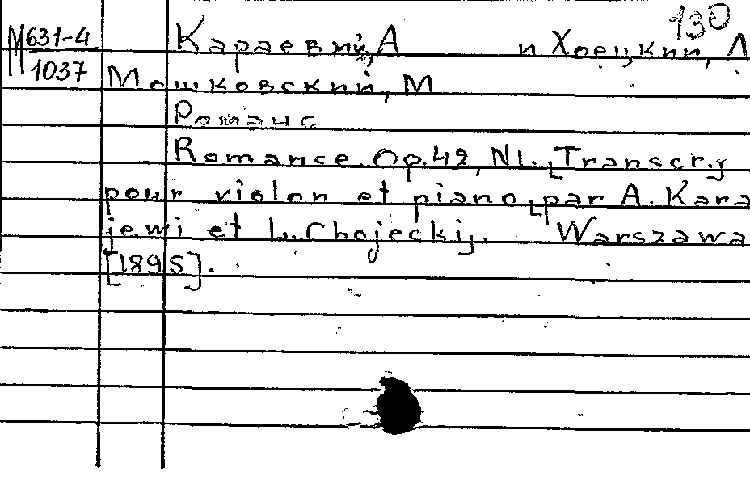 130
М631-4
1037
Караевий, А и Хоецкий, Л
Мошковский, М
Романс
Romance. Op. 42, N1. [Transcr.]
pour violon et piano par A. Kara
jewi et L. Chojeckij. Warszawa
[1895].